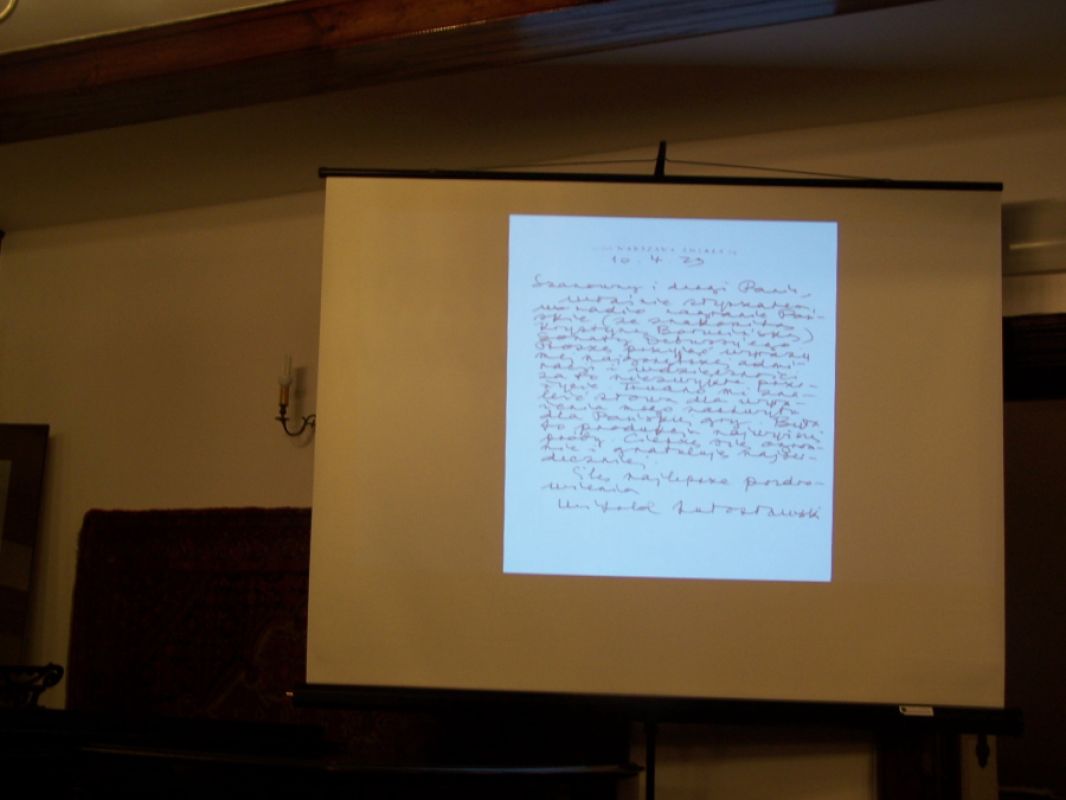 WARSZAWA
10. 4. 79
Szanowny i drogi Panie,
właśnie słyszałem
w radio nagranie Pań-
skie (ze znakomitą
Krystyną Borucińską)
sonaty Debussy'ego.
Proszę przyjąć wyrazy
mej najgorętszej admi-
racji i wdzięczności
za to niezwykłe prze-
życie. Trudno mi zna-
leźć słowa dla wyra-
żenia mego zachwytu
dla Pańskiej gry. Była
to produkcja najwyższej
próby. Cieszę się ogrom-
nie i gratuluję najser-
deczniej.
Ślę najlepsze pozdro-
wienia
Witold Lutosławski